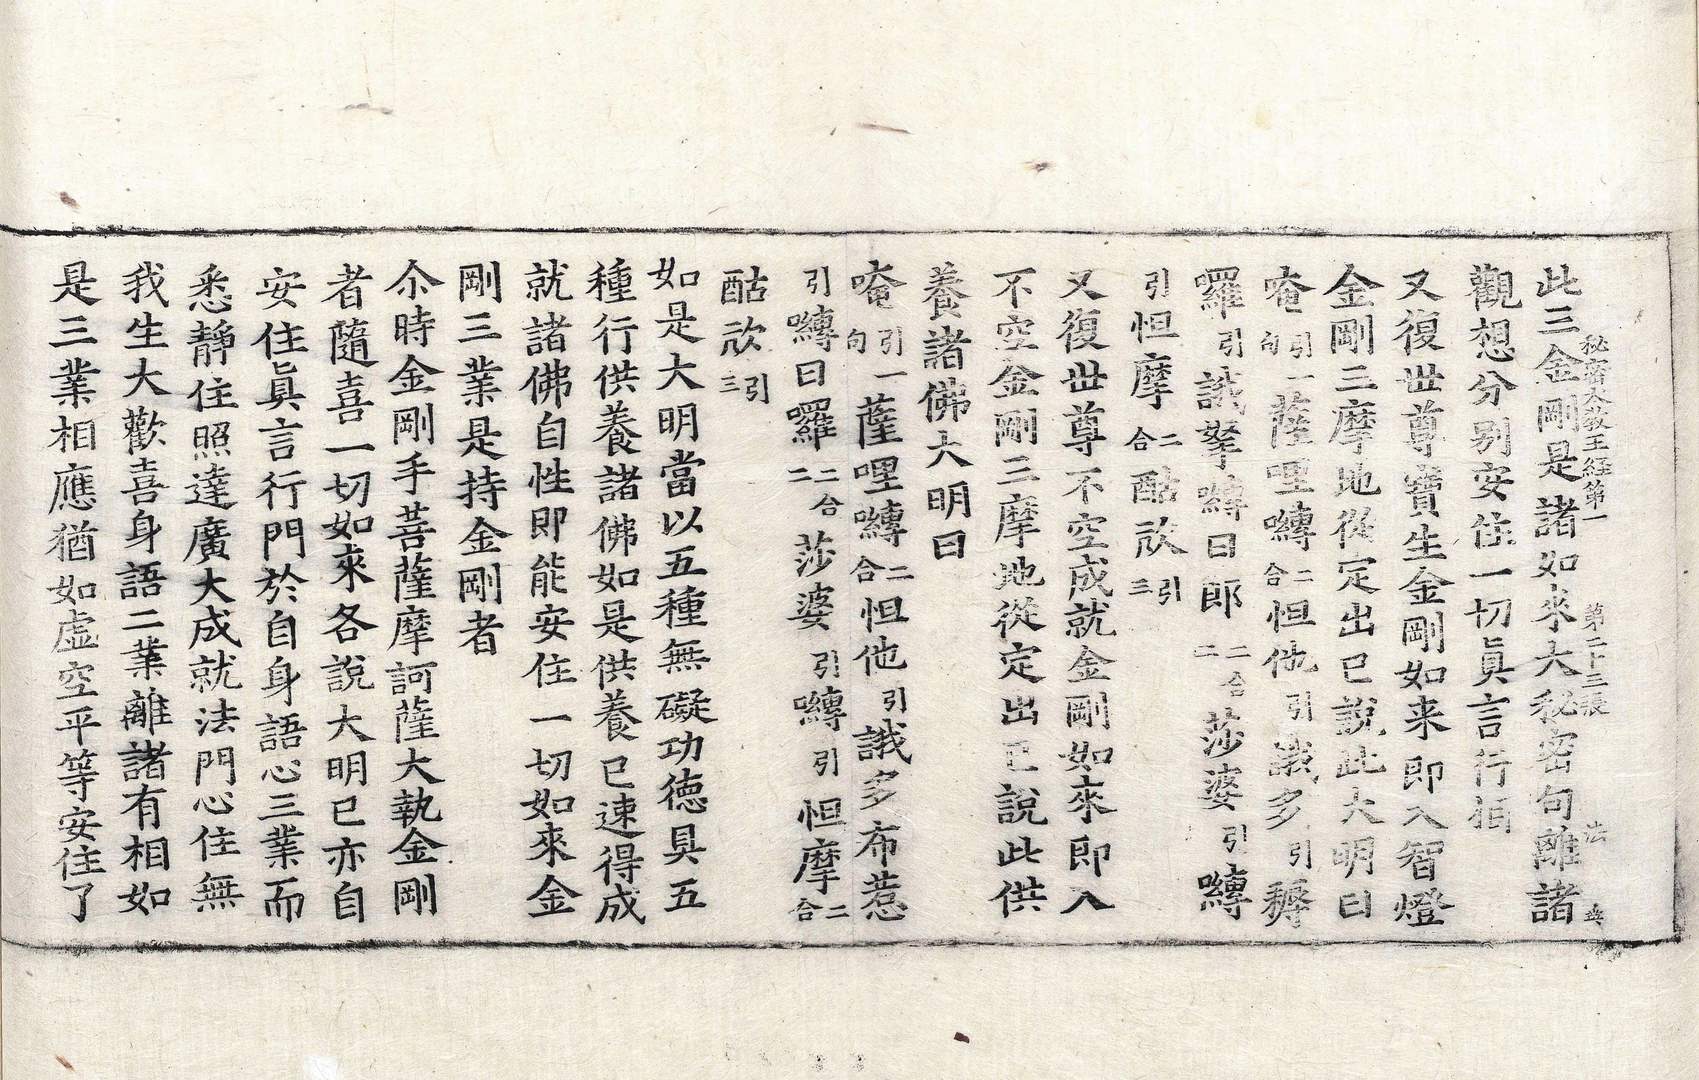 秘密大教王経第一 第二十三張 法
此三金剛是諸如來大秘密句離諸
觀想分别安住一切眞言行相
又復世尊寶生金剛如来即入智燈
金剛三摩地從定出已說此大明曰
唵引一句薩哩嚩二合怛他引誐多引
囉引誐拏嚩曰郎二合二莎婆引嚩
引怛摩二合酤㰠引三
又復世尊不空成就金剛如來即入
不空金剛三摩地從定出已說此供
養諸佛大明曰
唵引一句薩哩嚩二合怛他引誐多布惹
引嚩曰囉二合二莎婆引嚩引怛摩二合
酤㰠引三
如是大明當以五種無礙功徳具五
種行供養諸佛如是供養已速得成
就諸佛自性即能安住一切如來金
剛三業是持金剛者
尒時金剛手菩薩摩訶薩大執金剛
者隨喜一切如來各說大明已亦自
安住眞言行門於自身語心三業而
悉靜住照達廣大成就法門心住無
我生大歡喜身語二業離諸有相如
是三業相應猶如虛空平等安住了